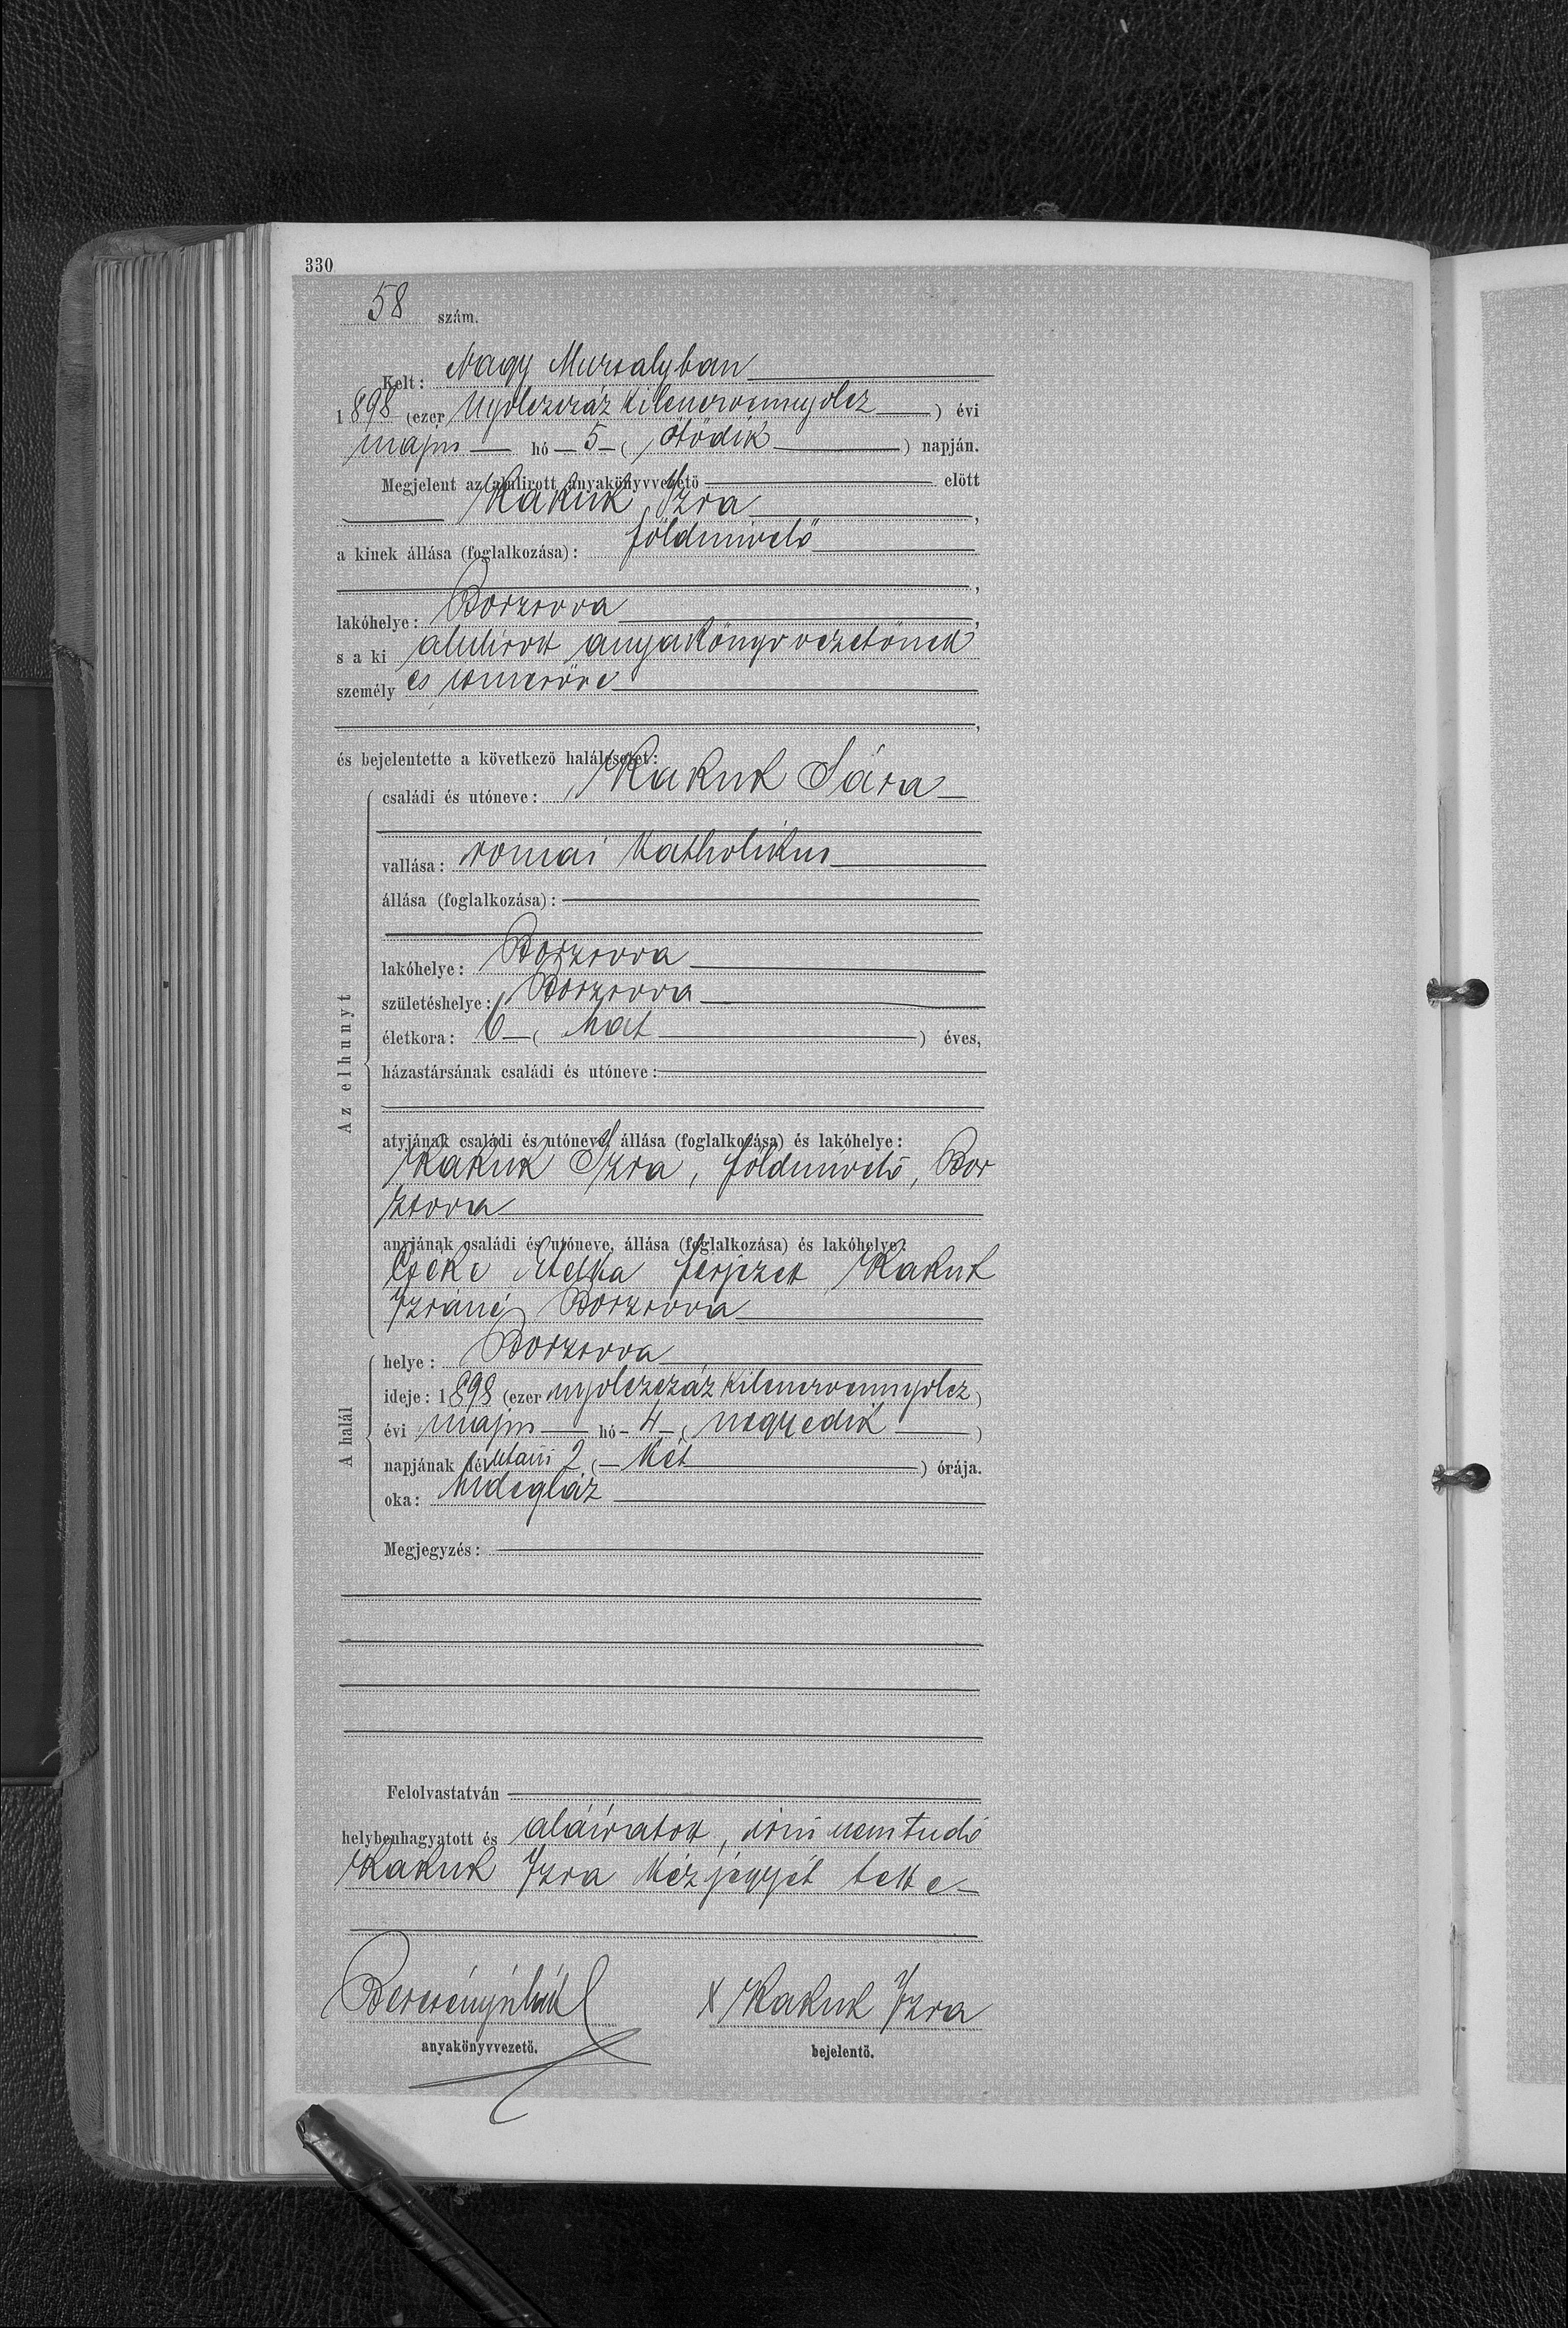 330
58 szám.
Kelt: Nagy Muzsalyban
1898 (ezer nyolczszáz kilenczvennyolcz) évi
majus hó 5 (ötödik) napján.
Megjelent az alulirott anyakönyvvezető előtt
Kakuk Izra,
a kinek állása (foglalkozása): földmivelő
,
lakóhelye: Borzsova,
s a ki alulirott anyakönyvvezetőnek
személyes ismerőse
,
és bejelentette a következő halálesetet:
családi és utóneve: Kakuk Sára
vallása: római katholikus
állása (foglalkozása):
lakóhelye: Borzsova
születéshelye: Borzsova
életkora: 6 (hat) éves,
házastársának családi és utóneve:
atyjának családi és utóneve, állása (foglalkozása) és lakóhelye:
Kakuk Izra, földmivelő, Bor
zsova
anyjának családi és utóneve, állása (foglalkozása) és lakóhelye:
Cseke férjezet Kakuk
Izráné Borzsova
Az elhunyt
helye: Borzsova
ideje: 1898 (ezer nyolczszáz kilenczvennyolcz)
évi majus hó 4 (negyedik)
napjának délutáni 2 (két) órája.
oka: hidegláz
A halál
Megjegyzés:
Felolvastatván
helybenhagyatott és aláiratott, irni nem tudó
Kakuk Izra kézjegyét tette
X Kakuk Izra
anyakönyvvezető. bejelentő.